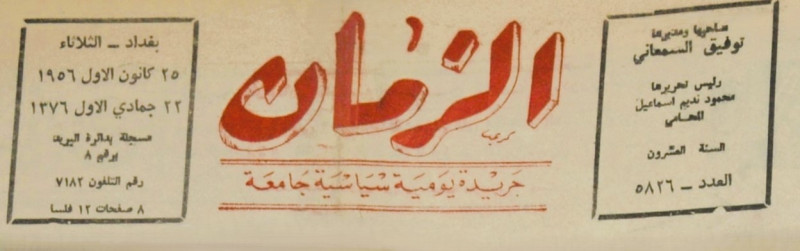 صاحبها ومديرها
توفيق السمعاني
رئيس تحريرها
محمود نديم اسماعيل
المحامي
السنة العشرون
العدد ــ ٥٨٢٦
الزمان
جريدة يومية سياسية جامعة
بغداد ــ الثلاثاء
٢٥ كانون الاول ١٩٥٦
٢٢ جمادي الاول ١٣٧٦
مسجلة بدائرة البريد
برقم ٨
رقم التلفون ٧١٨٢
٨ صفحات ١٢ فلسا